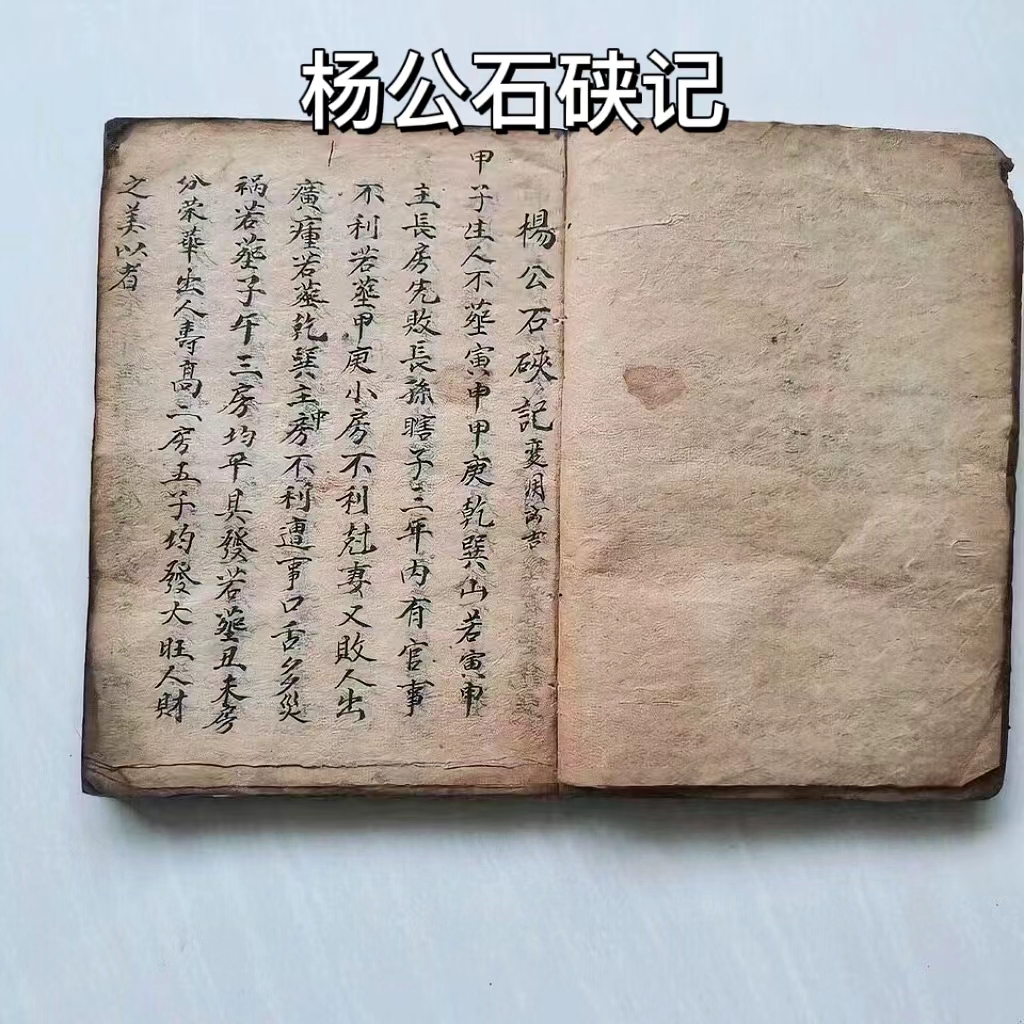 杨公石硖记
楊公石硤記
甲子生人不塟寅申甲庚乾巽山若寅申
主長房先敗長孫瞎子三年内有官事
不利若塟甲庚小房不利尅妻又敗人出
癀瘇若塟乾巽主中房不利遭事口舌多災
禍若塟子午三房均平具發若塟丑未房
分荣華出人壽高二房五子均發大旺人財
之美以者